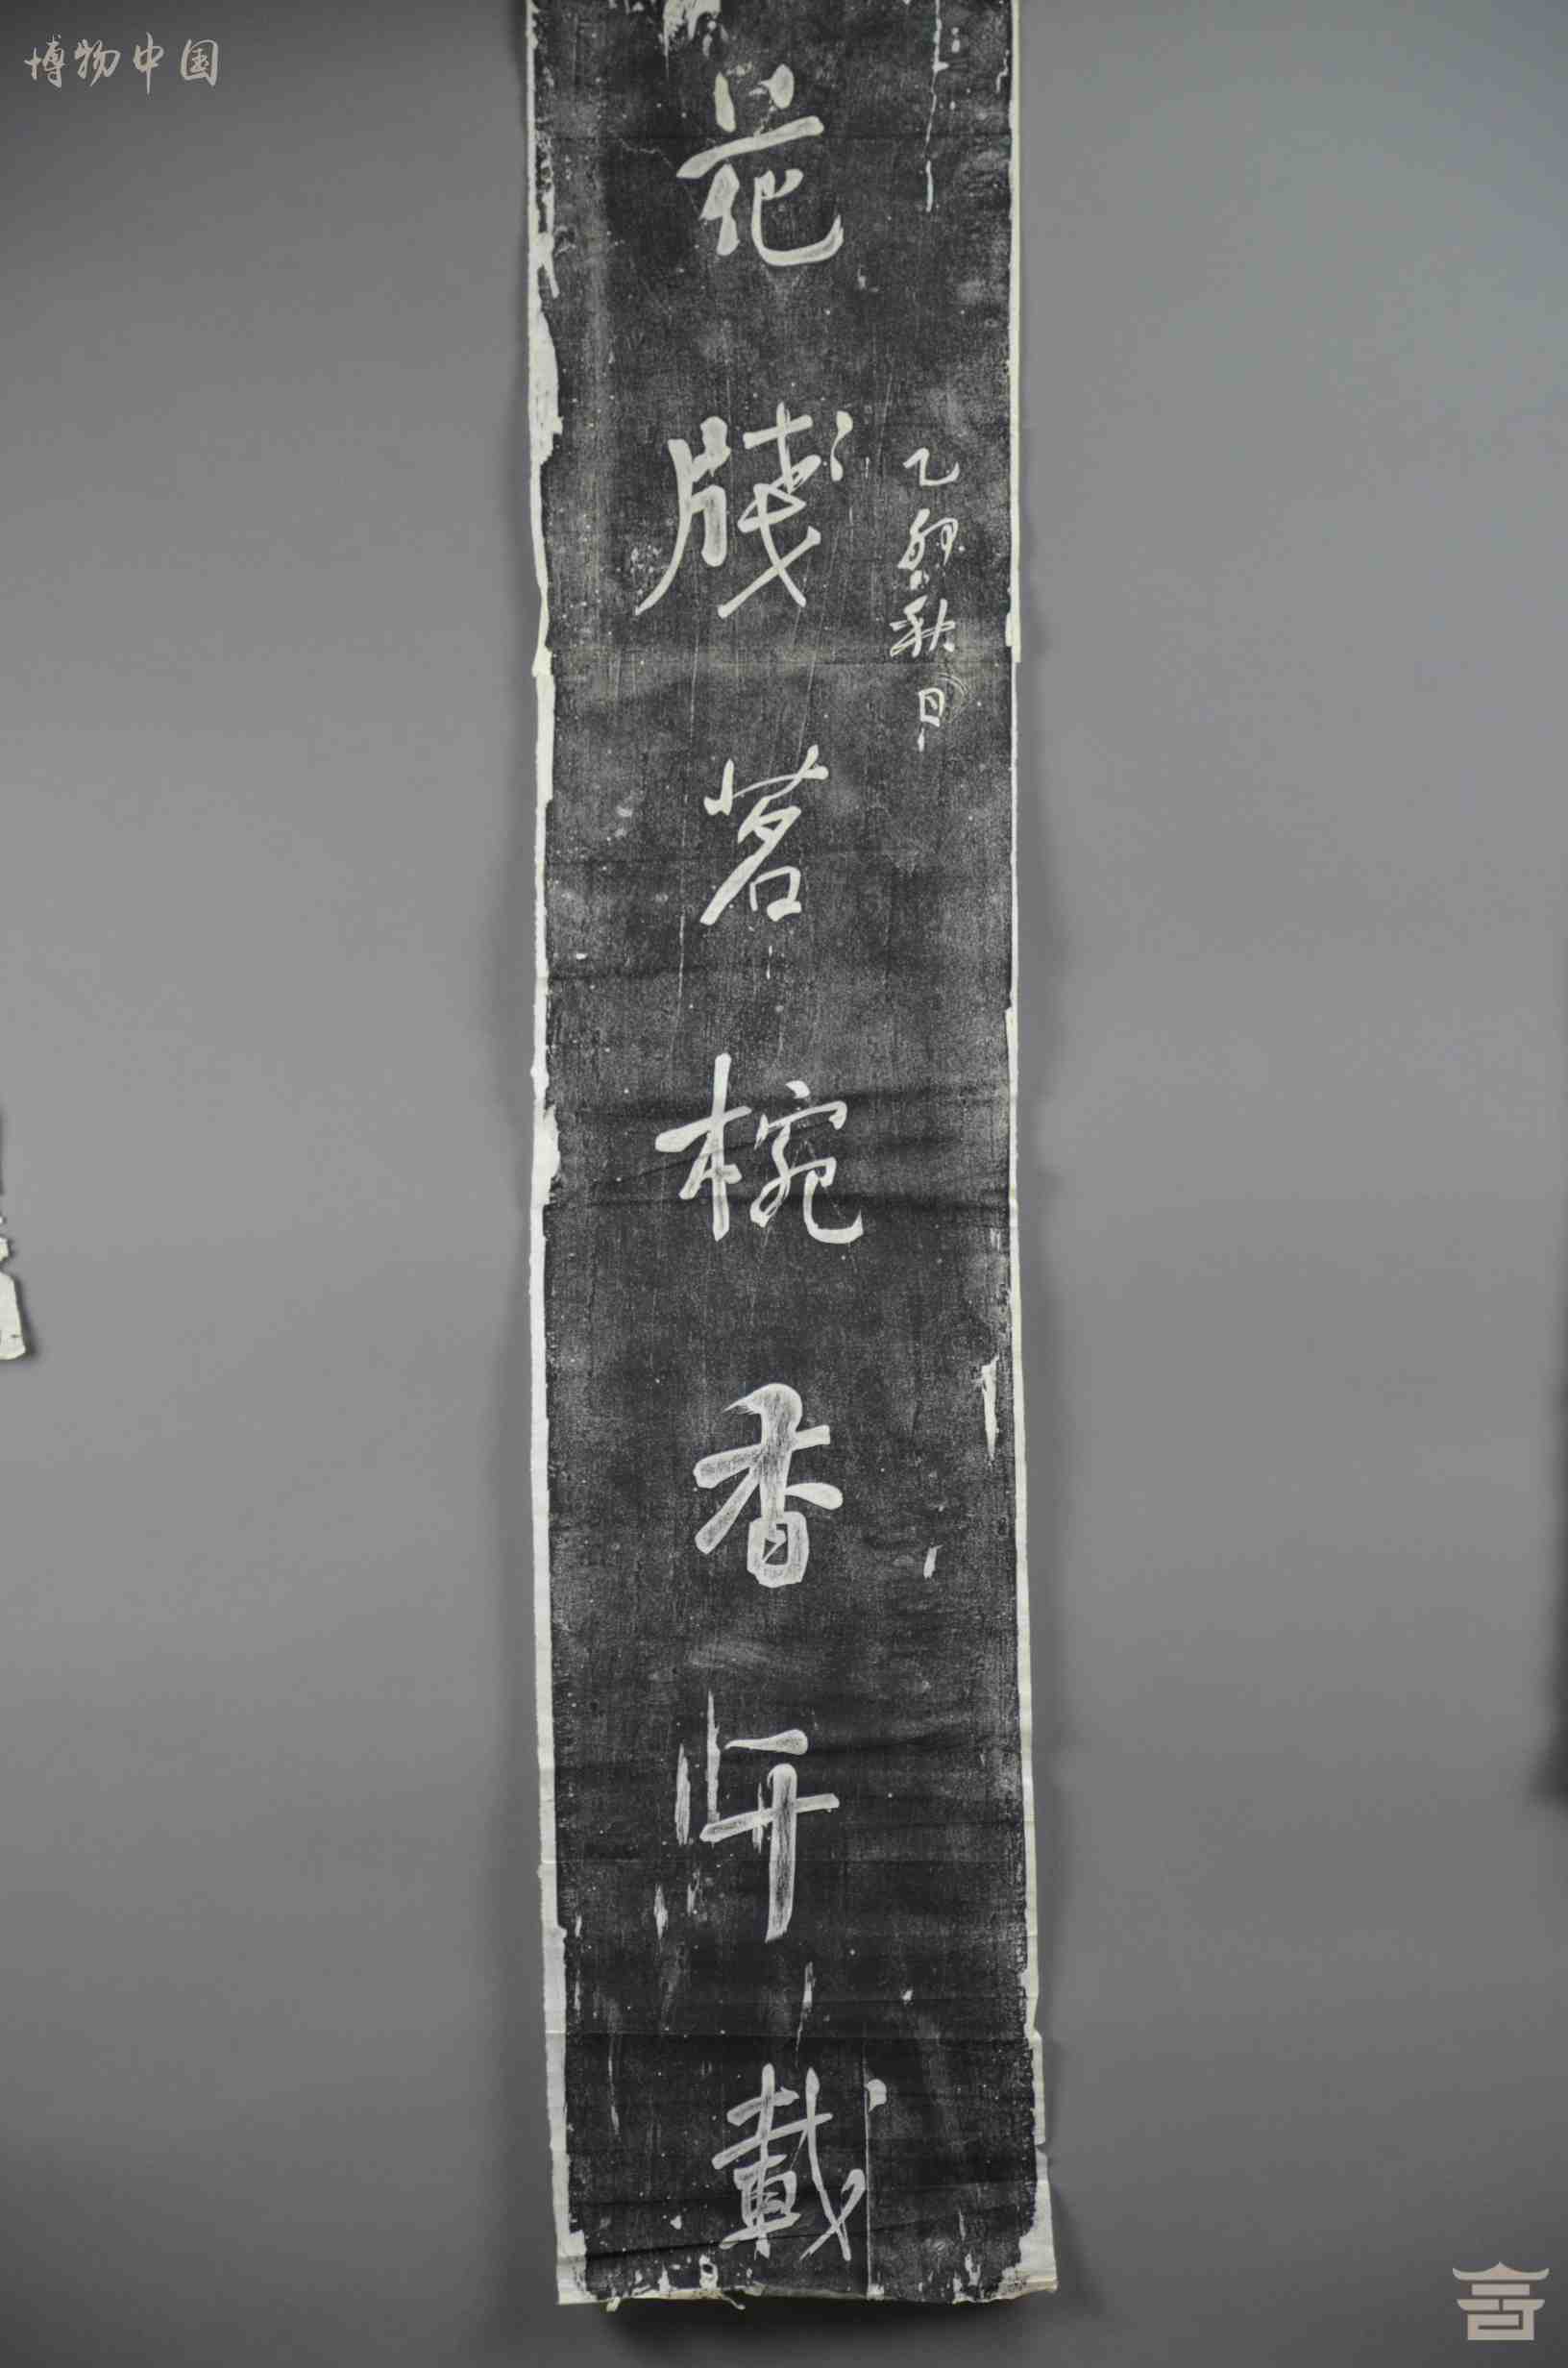 博物中国
乙卯秋日
花牋茗椀香千載